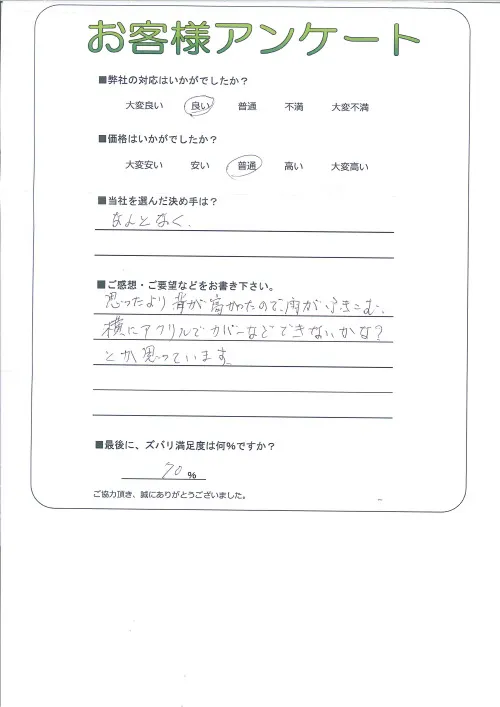 お客様アンケート
■弊社の対応はいかがでしたか?
大変良い 良い 普通 不満 大変不満
■価格はいかがでしたか?
大変安い 安い 普通 高い 大変高い
■当社を選んだ決め手は?
なんとなく.
■ご感想・ご要望などをお書き下さい。
思ったより背が高かったので、雨がふきこむ、
横にアクリルでカバーなどできないかな?
とか思っています
■最後に、ズバリ満足度は何%ですか?
70 %
ご協力頂き、誠にありがとうございました。